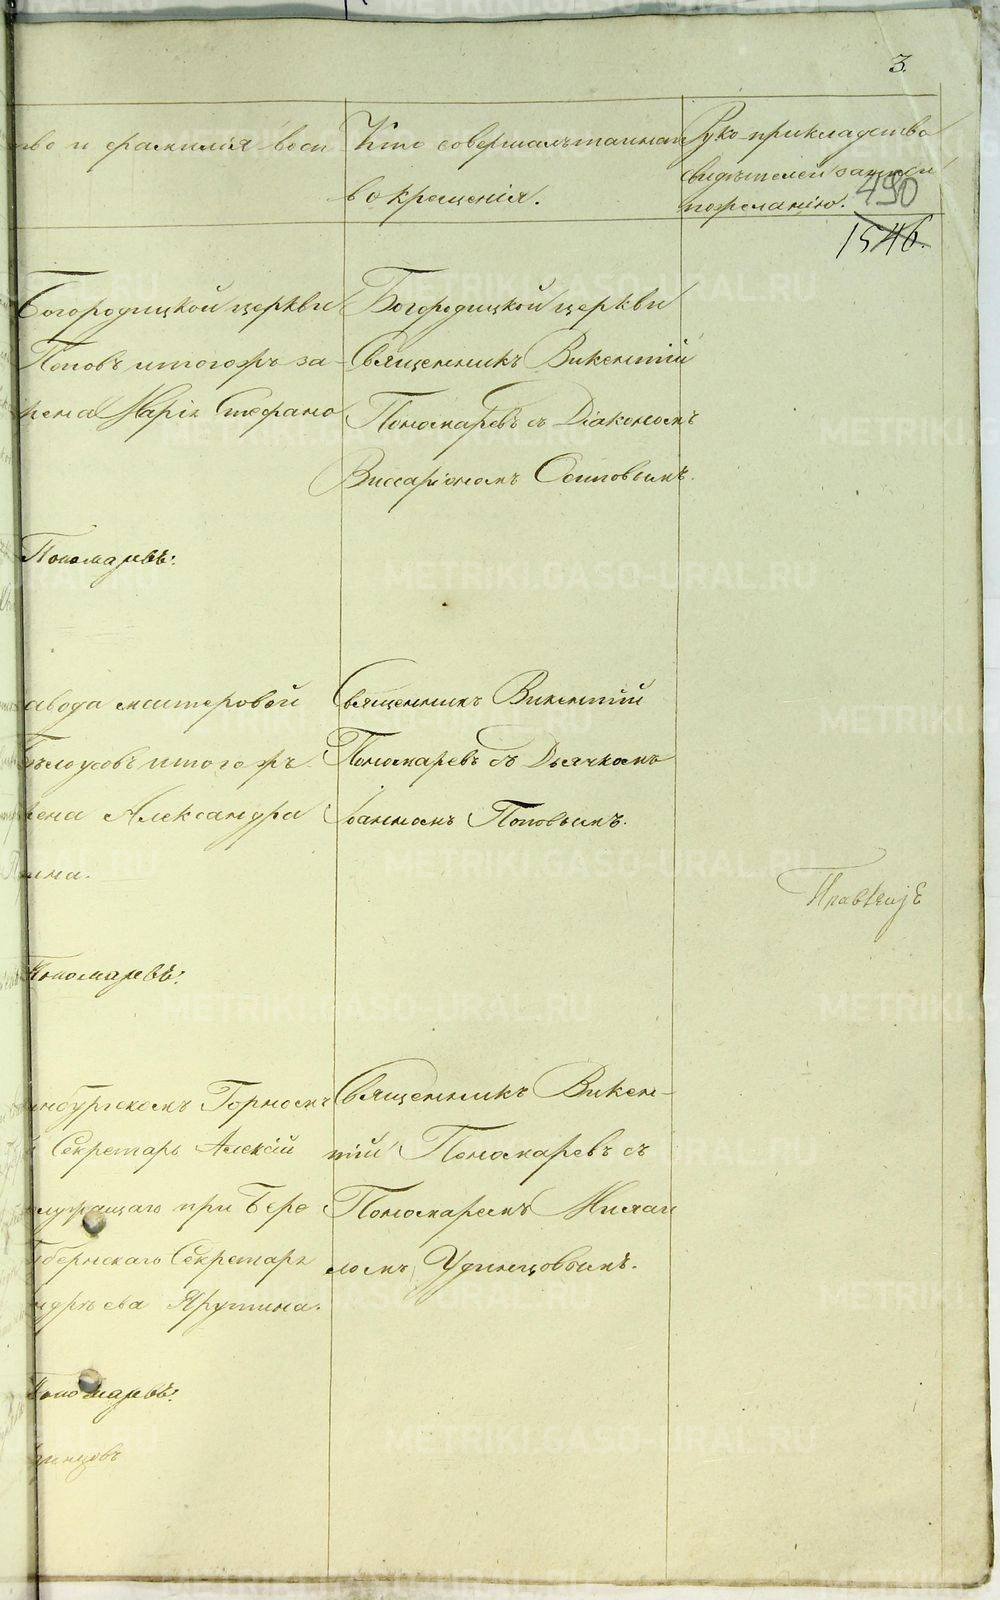 3.
тво и фамилія воси
Кто совершалъ таинст
во крещенія.
Рукоприкладство
свидѣтелей записи
по желанію.
490
1546.
Богородицкой церкви
Поповъ и тогожъ за-
жена Марія Стефано
Богородицкой церкви
Священникъ Викентій
Пономаревъ съ Діакономъ
Виссаріономъ Сситовымъ.
Пономаревъ.
авода мастеровой
Бѣлоусовъ и тогожъ
жена Александра
ина.
Священникъ Викентій
Пономаревъ съ Дьячкомъ
Іоанномъ Поповымъ.
Пономаревъ.
инбургскомъ Горномъ
Секретарь Алексій
служащаго при Бере
Губернскаго Секретаря
ндрѣева Ярутина.
Священникъ Викен-
тій Пономаревъ съ
Пономаремъ Михаи
ломъ Удинцовымъ.
Пономаревъ.
динцовъ
METRIKI.GASO-URAL.RU